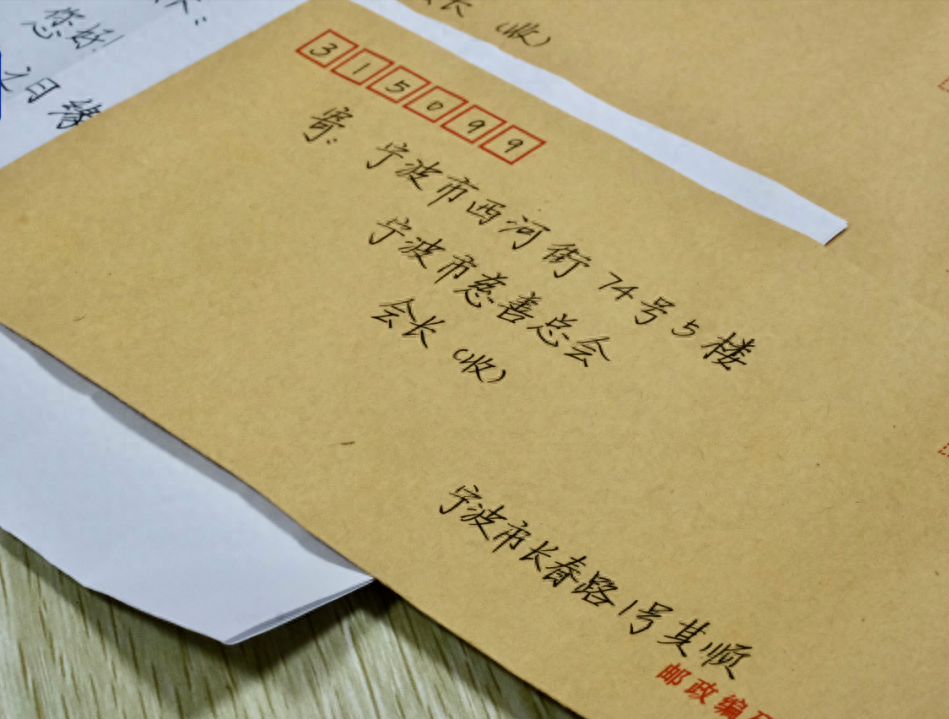 您好!
之日缘
长（收）
315099
寄：宁波市西河街74号5楼
宁波市慈善总会
会长（收）
宁波市长春路1号其顺
邮政编